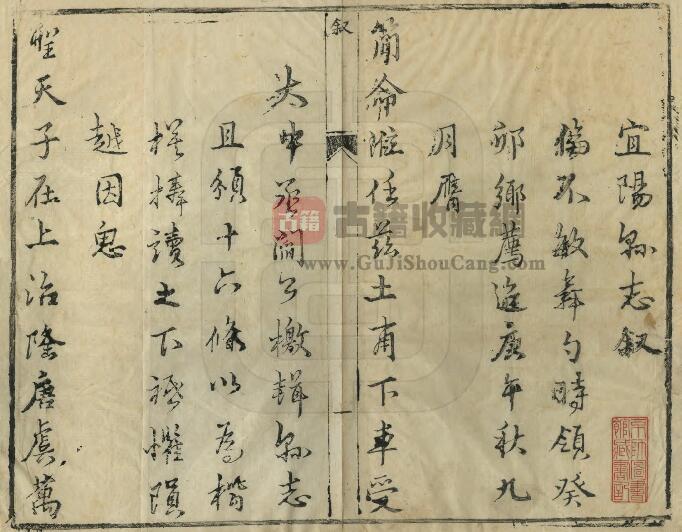 宜陽縣志叙
不敏舞勺時領癸
卯鄉薦迨庚午秋九
月膺
簡命任茲土甫下車受
叙
一
大中丞閻公檄輯縣志
且頒十六條以為楷
模捧讀之下祗懼隕
越因思
聖天子在上治隆唐虞萬
古籍
古籍收藏網
www.GuJiShouCang.com